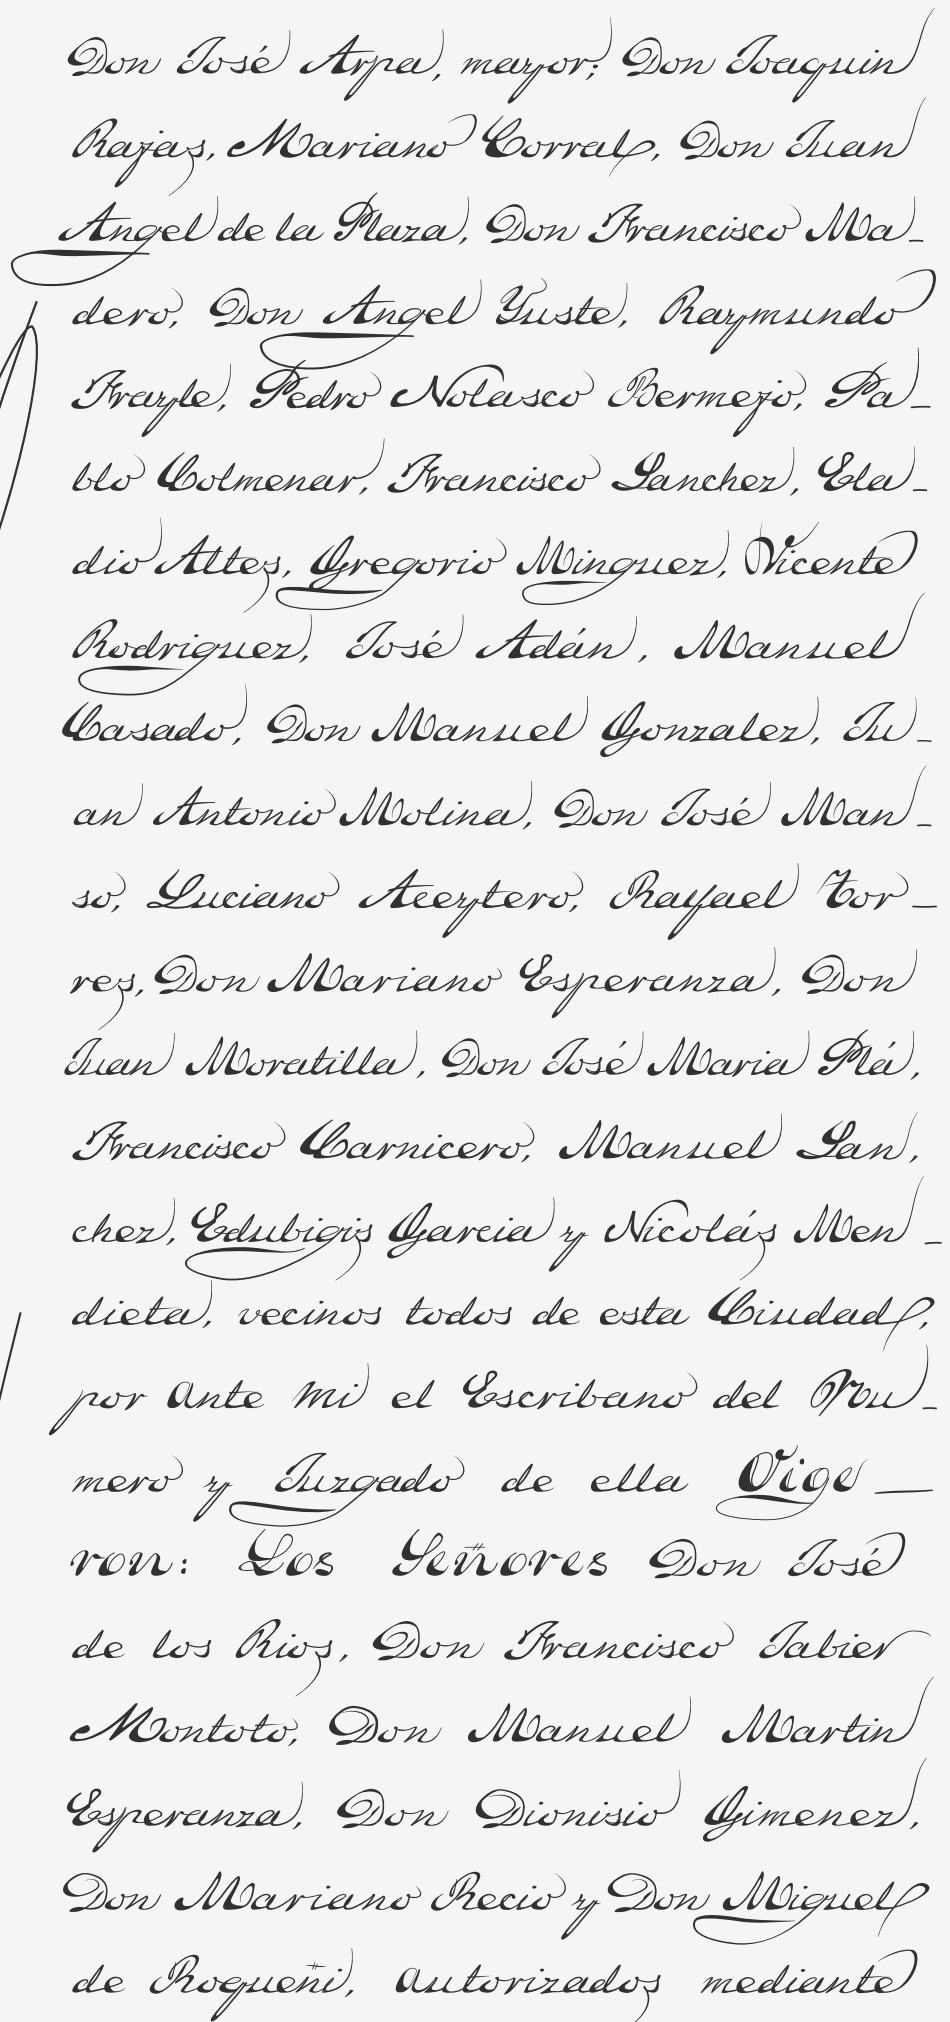 Don José Arpa, mayor; Don Joaquin
Rajas, Mariano Corral, Don Juan
Angel de la Plaza, Don Francisco Ma-
dero, Don Angel Yuste, Raymundo
Frayle, Pedro Nolasco Bermejo, Pa-
blo Colmenar, Francisco Sanchez, Ela-
dio Altes, Gregorio Minguez, Vicente
Rodriguez, José Adán, Manuel
Casado, Don Manuel Gonzalez, Ju-
an Antonio Molina, Don José Man-
so, Luciano Aceytero, Rafael Tor-
res, Don Mariano Esperanza, Don
Juan Moratilla, Don José Maria Plá,
Francisco Carnicero, Manuel San,
chez, Edubigis Garcia y Nicolás Men-
dieta, vecinos todos de esta Ciudad,
por ante mi el Escribano del Nu-
mero y Juzgado de ella Dige-
ron: Los Señores Don José
de los Rios, Don Francisco Jabier
Montoto, Don Manuel Martin
Esperanza, Don Dionisio Gimenez,
Don Mariano Recio y Don Miguel
de Roqueñi, autorizados mediante